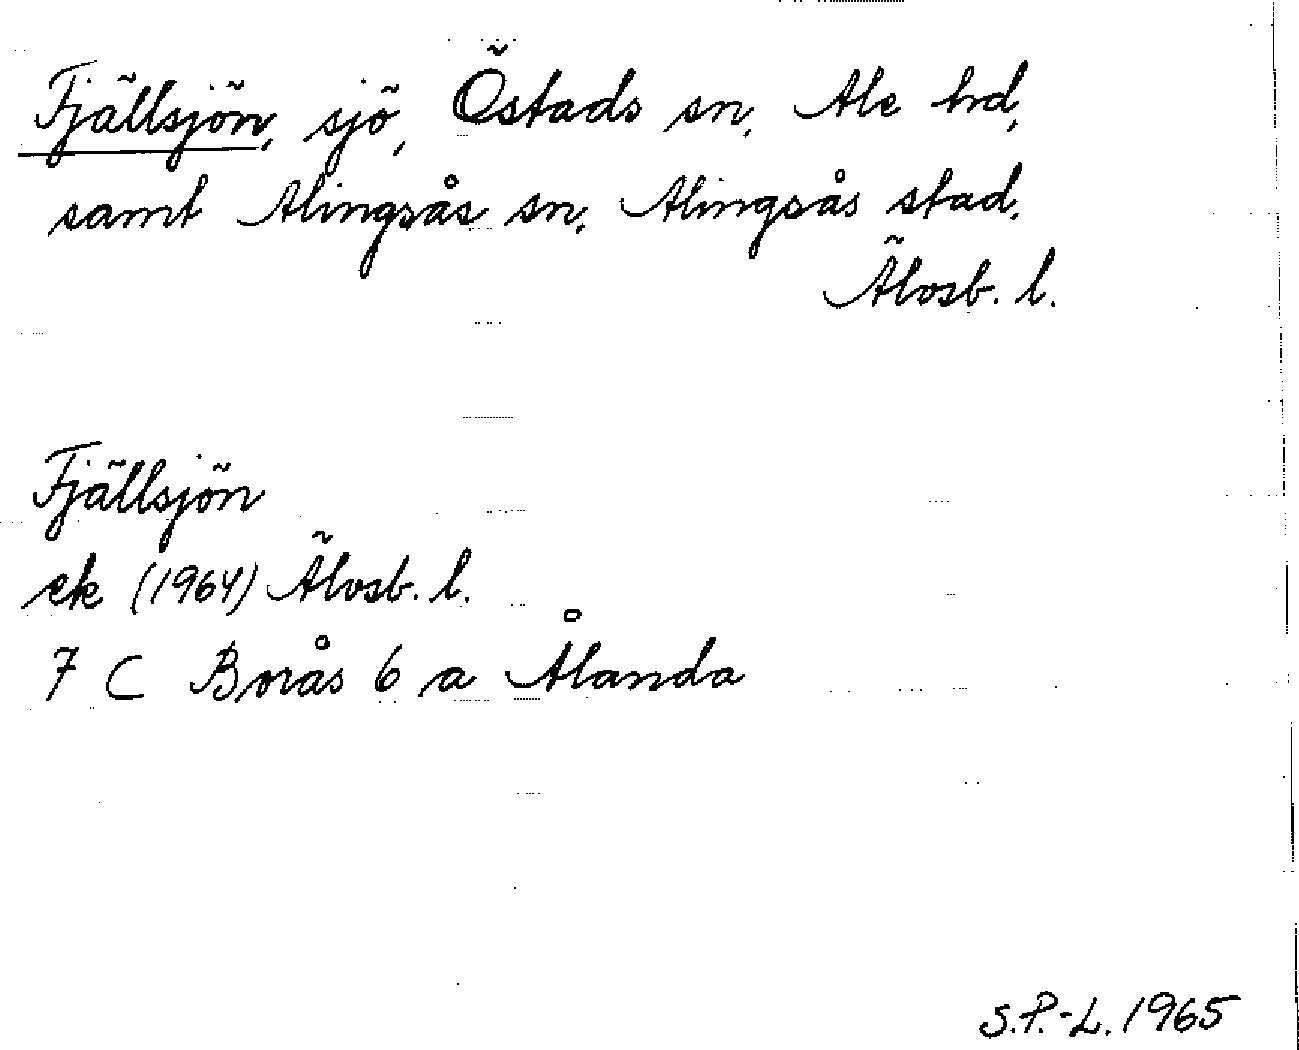 Fjällsjön, sjö, Östads sn, Ale hd,
samt Alingsås sn, Alingsås stad,
Älvsb. l.
Fjällsjön
ek (1964) Älvsb. l.
7 C Borås 6 a Ålanda
S.P.-L. 1965